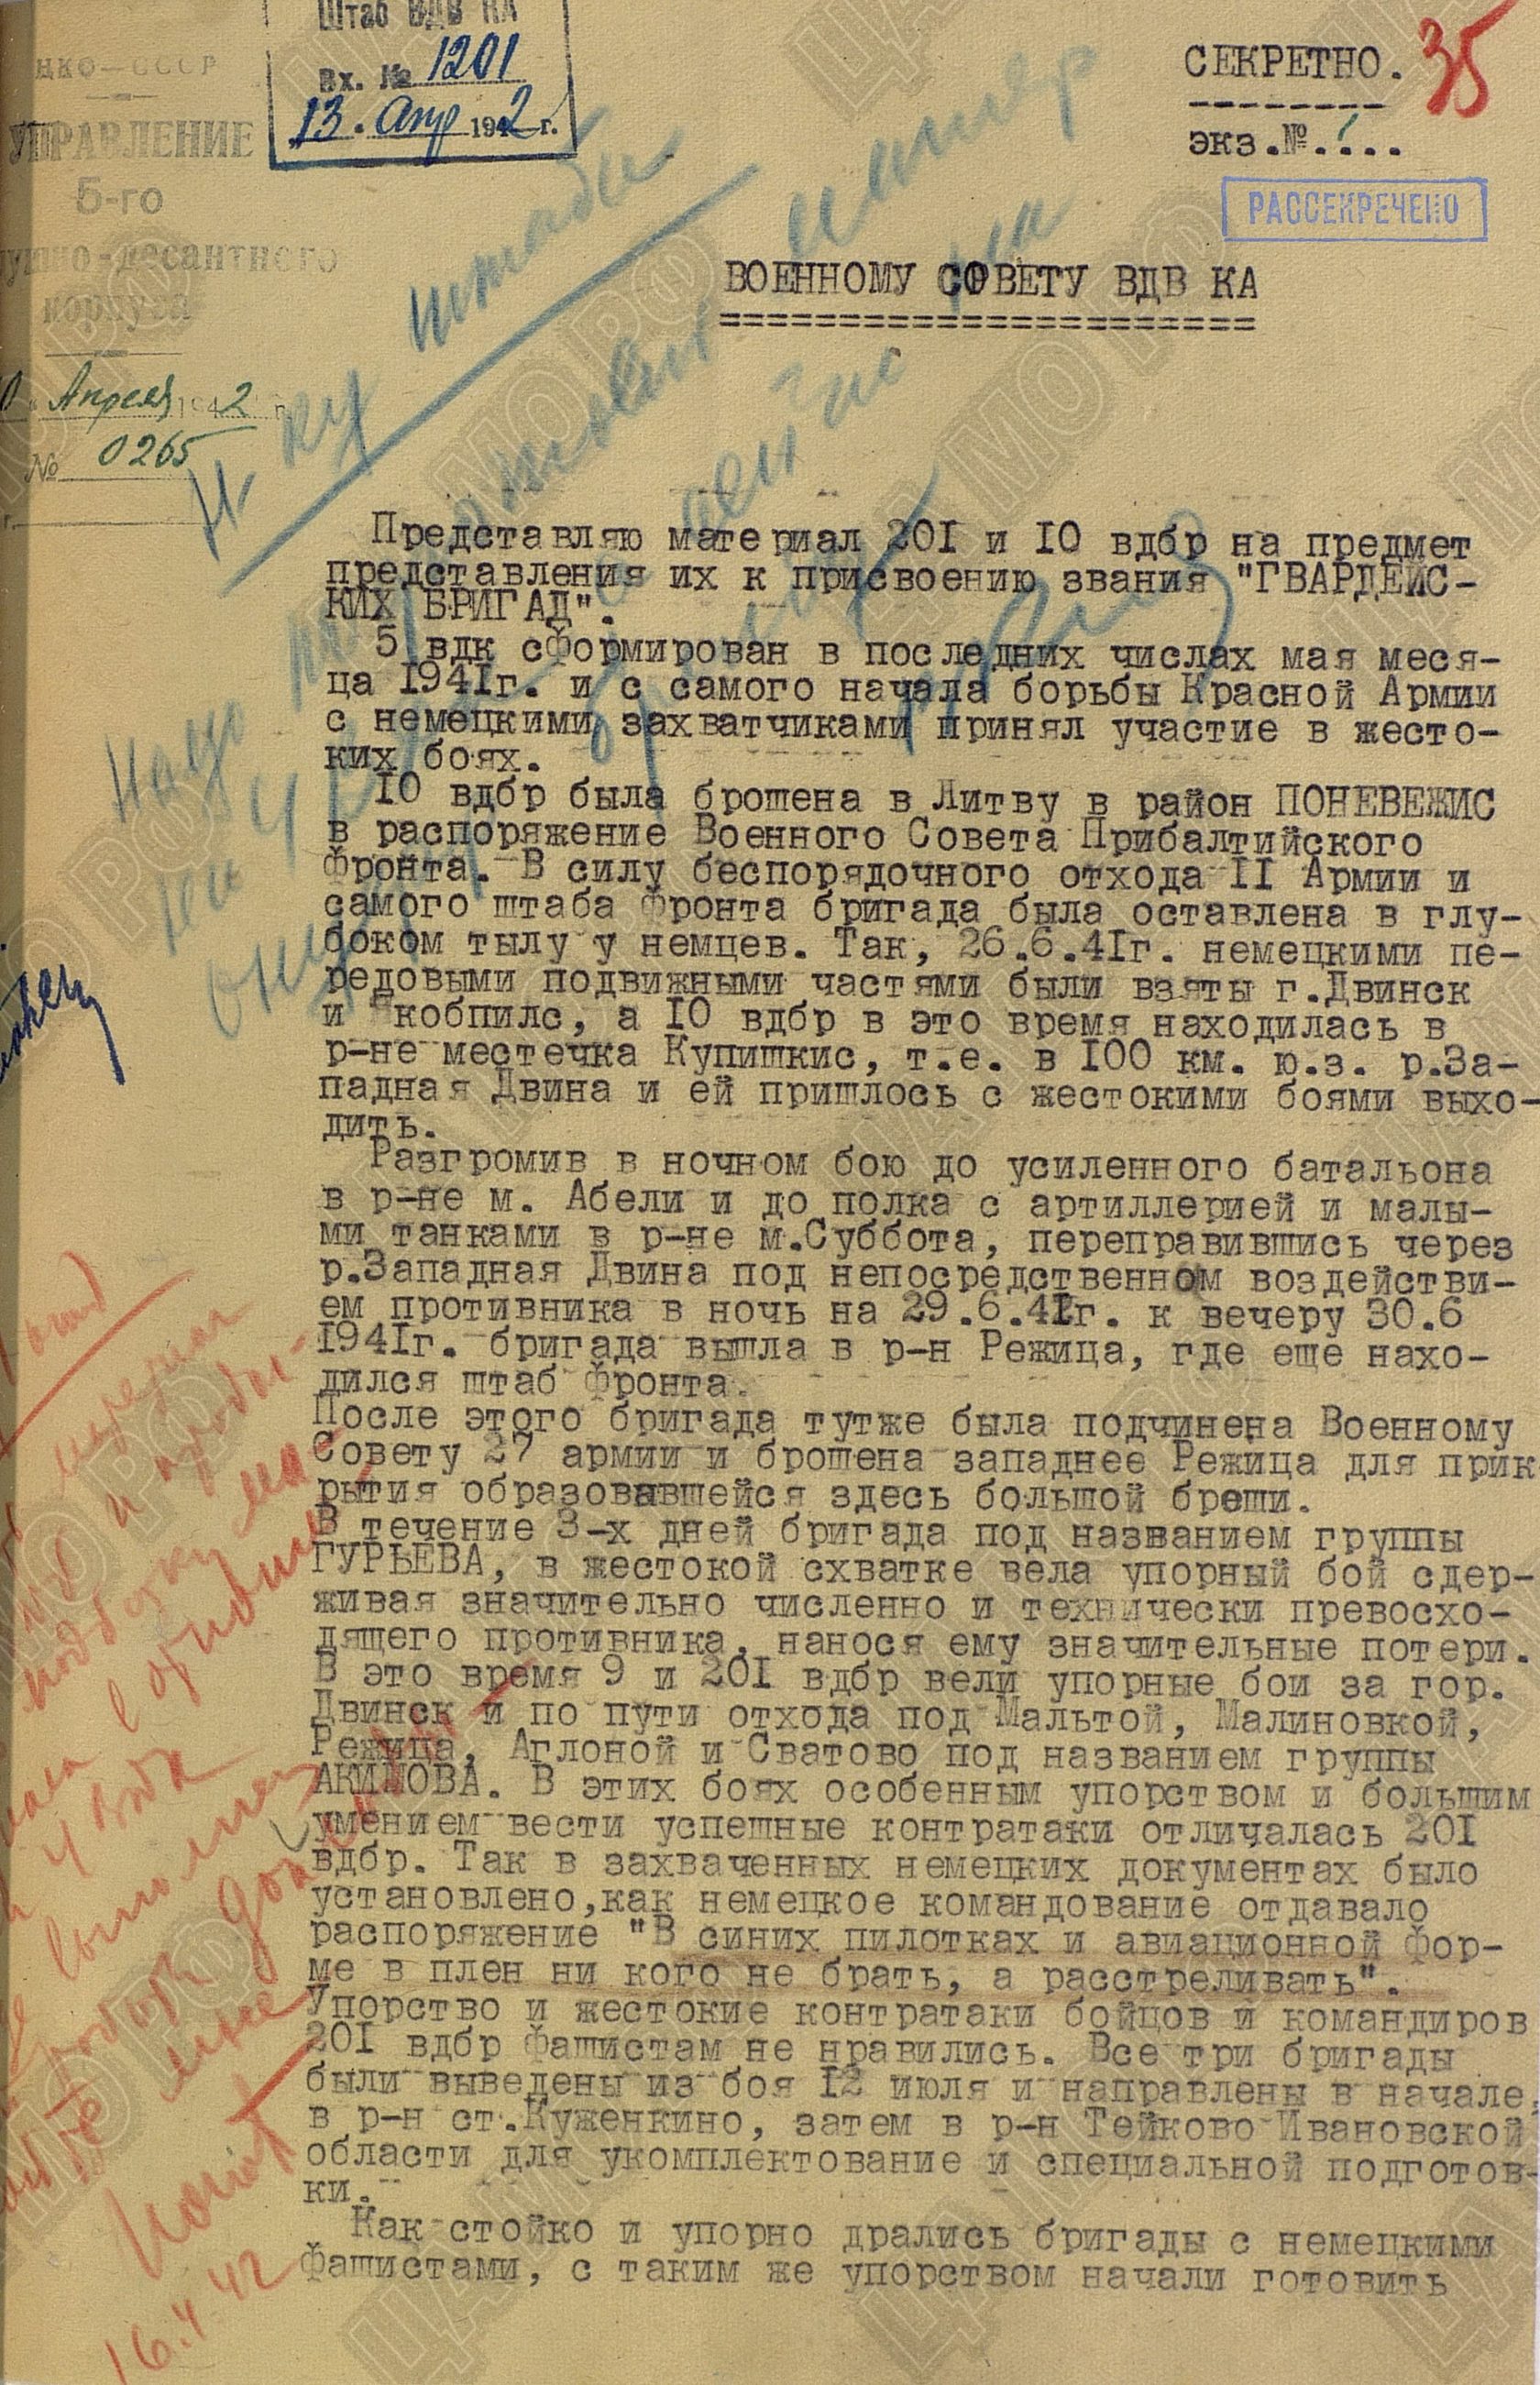 Штаб ВДВ КА
Вх. № 1201
13. Апр 1942 г.
СЕКРЕТНО. 35
экз.№....
НКО—СССР
УПРАВЛЕНИЕ
5-го
душно-десантного
корпуса
Апреля 1942 г.
№ 0265
РАССЕКРЕЧЕНО
ВОЕННОМУ СОВЕТУ ВДВ КА
Н-ку штаба
Представляю материал 201 и 10 вдбр на предмет
представления их к присвоению звания "ГВАРДЕЙС-
КИХ БРИГАД".
5 вдк сформирован в последних числах мая меся-
ца 1941г. и с самого начала борьбы Красной Армии
с немецкими захватчиками принял участие в жесто-
ких боях.
10 вдбр была брошена в Литву в район ПОНЕВЕЖИС
в распоряжение Военного Совета Прибалтийского
фронта. В силу беспорядочного отхода 11 Армии и
самого штаба фронта бригада была оставлена в глу-
боком тылу у немцев. Так, 26.6.41г. немецкими пе-
редовыми подвижными частями были взяты г.Двинск
и кобпилс, а 10 вдбр в это время находилась в
р-не местечка Купишкис, т.е. в 100 км. ю.з. р.За-
падная Двина и ей пришлось с жестокими боями выхо-
дить.
Разгромив в ночном бою до усиленного батальона
в р-не м. Абели и до полка с артиллерией и малы-
ми танками в р-не м.Суббота, переправившись через
р.Западная Двина под непосредственном воздействи-
ем противника в ночь на 29.6.41г. к вечеру 30.6
1941г. бригада вышла в р-н Режица, где еще нахо-
дился штаб фронта.
После этого бригада тутже была подчинена Военному
Совету 27 армии и брошена западнее Режица для прик
рытия образовавшейся здесь большой бреши.
В течение 3-х дней бригада под названием группы
ГУРЬЕВА, в жестокой схватке вела упорный бой сдер-
живая значительно численно и технически превосхо-
дящего противника, нанося ему значительные потери.
В это время 9 и 201 вдбр вели упорные бои за гор.
Двинск и по пути отхода под Мальтой, Малиновкой,
Режица, Аглоной и Сватово под названием группы
АКИМОВА. В этих боях особенным упорством и большим
умением вести успешные контратаки отличалась 201
вдбр. Так в захваченных немецких документах было
установлено,как немецкое командование отдавало
распоряжение "В синих пилотках и авиационной фор-
ме в плен ни кого не брать, а расстреливать".
Упорство и жестокие контратаки бойцов и командиров
201 вдбр фашистам не нравились. Все три бригады
были выведены из боя 12 июля и направлены в начале
в р-н ст.Куженкино, затем в р-н Тейково Ивановской
области для укомплектование и специальной подготов-
ки.
Как стойко и упорно дрались бригады с немецкими
фашистами, с таким же упорством начали готовить
16.4.42